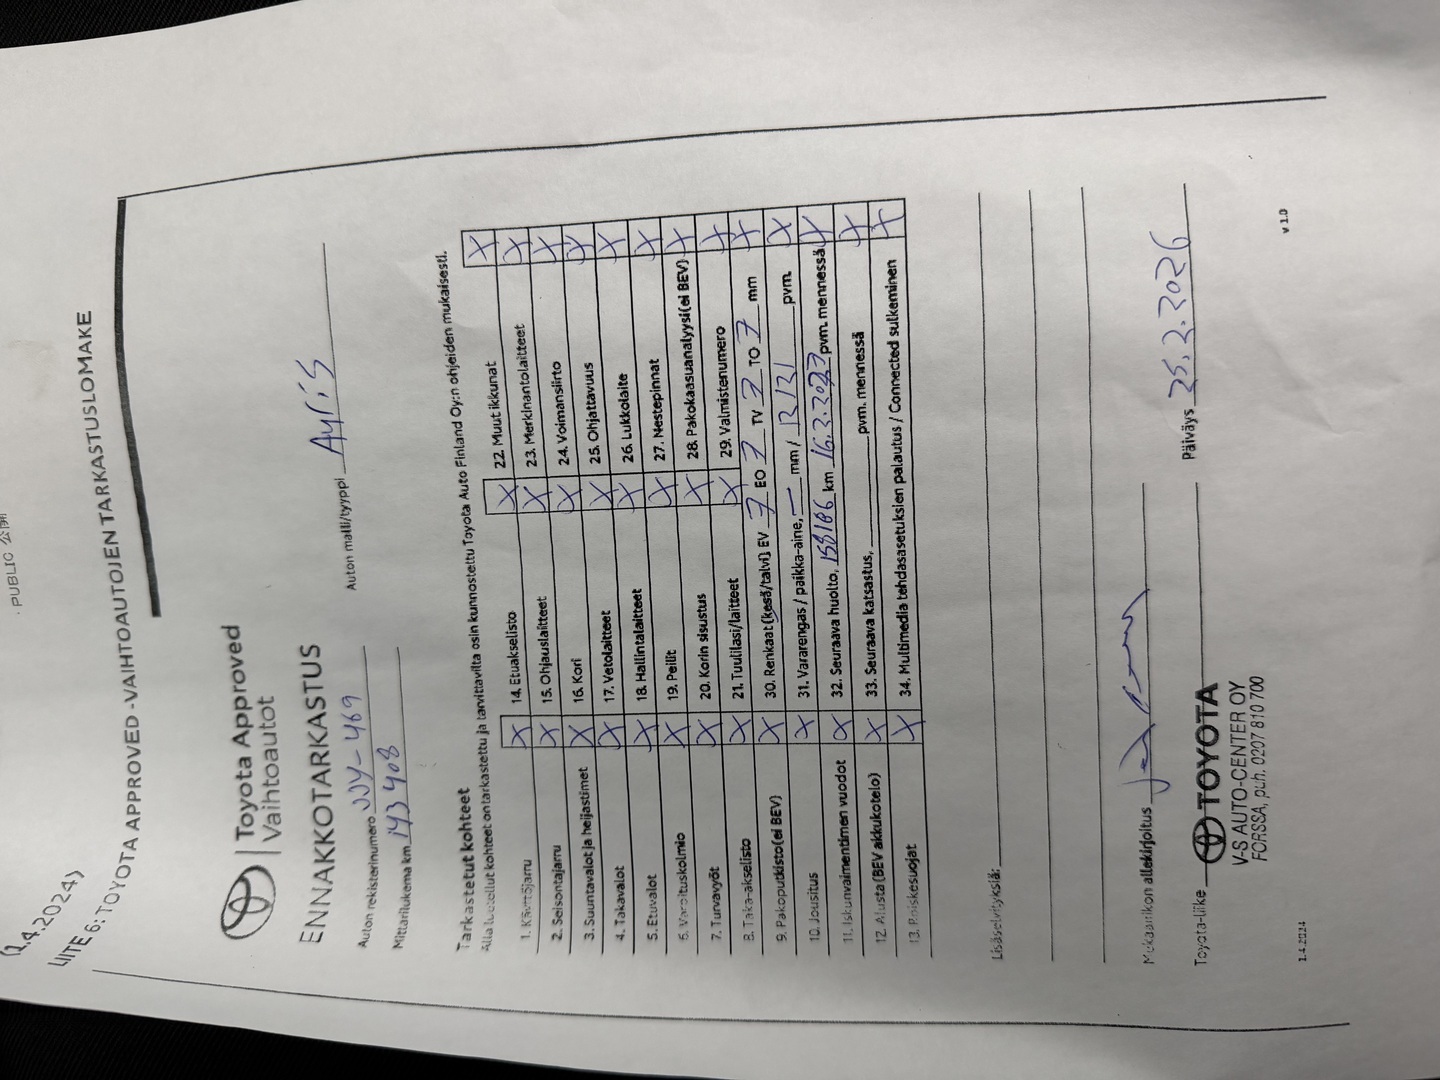 PUBLIC 公開
(1.4.2024)
LIITE 6: TOYOTA APPROVED -VAIHTOAUTOJEN TARKASTUSLOMAKE
Toyota Approved
Vaihtoautot
ENNAKKOTARKASTUS
Auton rekisterinumero JJY-469 Auton malli/tyyppi Auris
Mittarilukema km 143 408
Tarkastetut kohteet
Alla luetellut kohteet on tarkastettu ja tarvittavilta osin kunnostettu Toyota Auto Finland Oy:n ohjeiden mukaisesti.
1. Käyttöjarru X
2. Seisontajarru X
3. Suuntavalot ja heijastimet X
4. Takavalot X
5. Etuvalot X
6. Varoituskolmio X
7. Turvavyöt X
8. Taka-akselisto X
9. Pakoputkisto (ei BEV) X
10. Jousitus X
11. Iskunvaimentimen vuodot X
12. Alusta (BEV akkukotelo) X
13. Roiskesuojat X
14. Etuakselisto X
15. Ohjauslaitteet X
16. Kori X
17. Vetolaitteet X
18. Hallintalaitteet X
19. Peilit X
20. Korin sisustus X
21. Tuulilasi/laitteet X
22. Muut ikkunat X
23. Merkinantolaitteet X
24. Voimansiirto X
25. Ohjattavuus X
26. Lukkolaite X
27. Nestepinnat X
28. Pakokaasuanalyysi (ei BEV) X
29. Valmistenumero X
30. Renkaat (kesä/talvi) EV 7 EO 7 TV 7 TO 7 mm X
31. Vararengas / paikka-aine, – mm / 12/31 pvm. X
32. Seuraava huolto, 158186 km 16.3.2027 pvm. mennessä X
33. Seuraava katsastus, pvm. mennessä X
34. Multimedia tehdasasetuksien palautus / Connected sulkeminen X
Lisäselvityksiä:
Mekaanikon allekirjoitus Päiväys 25.2.2026
Toyota-liike TOYOTA
V-S AUTO-CENTER OY
FORSSA, puh. 0207 810 700
1.4.2024 v 1.0